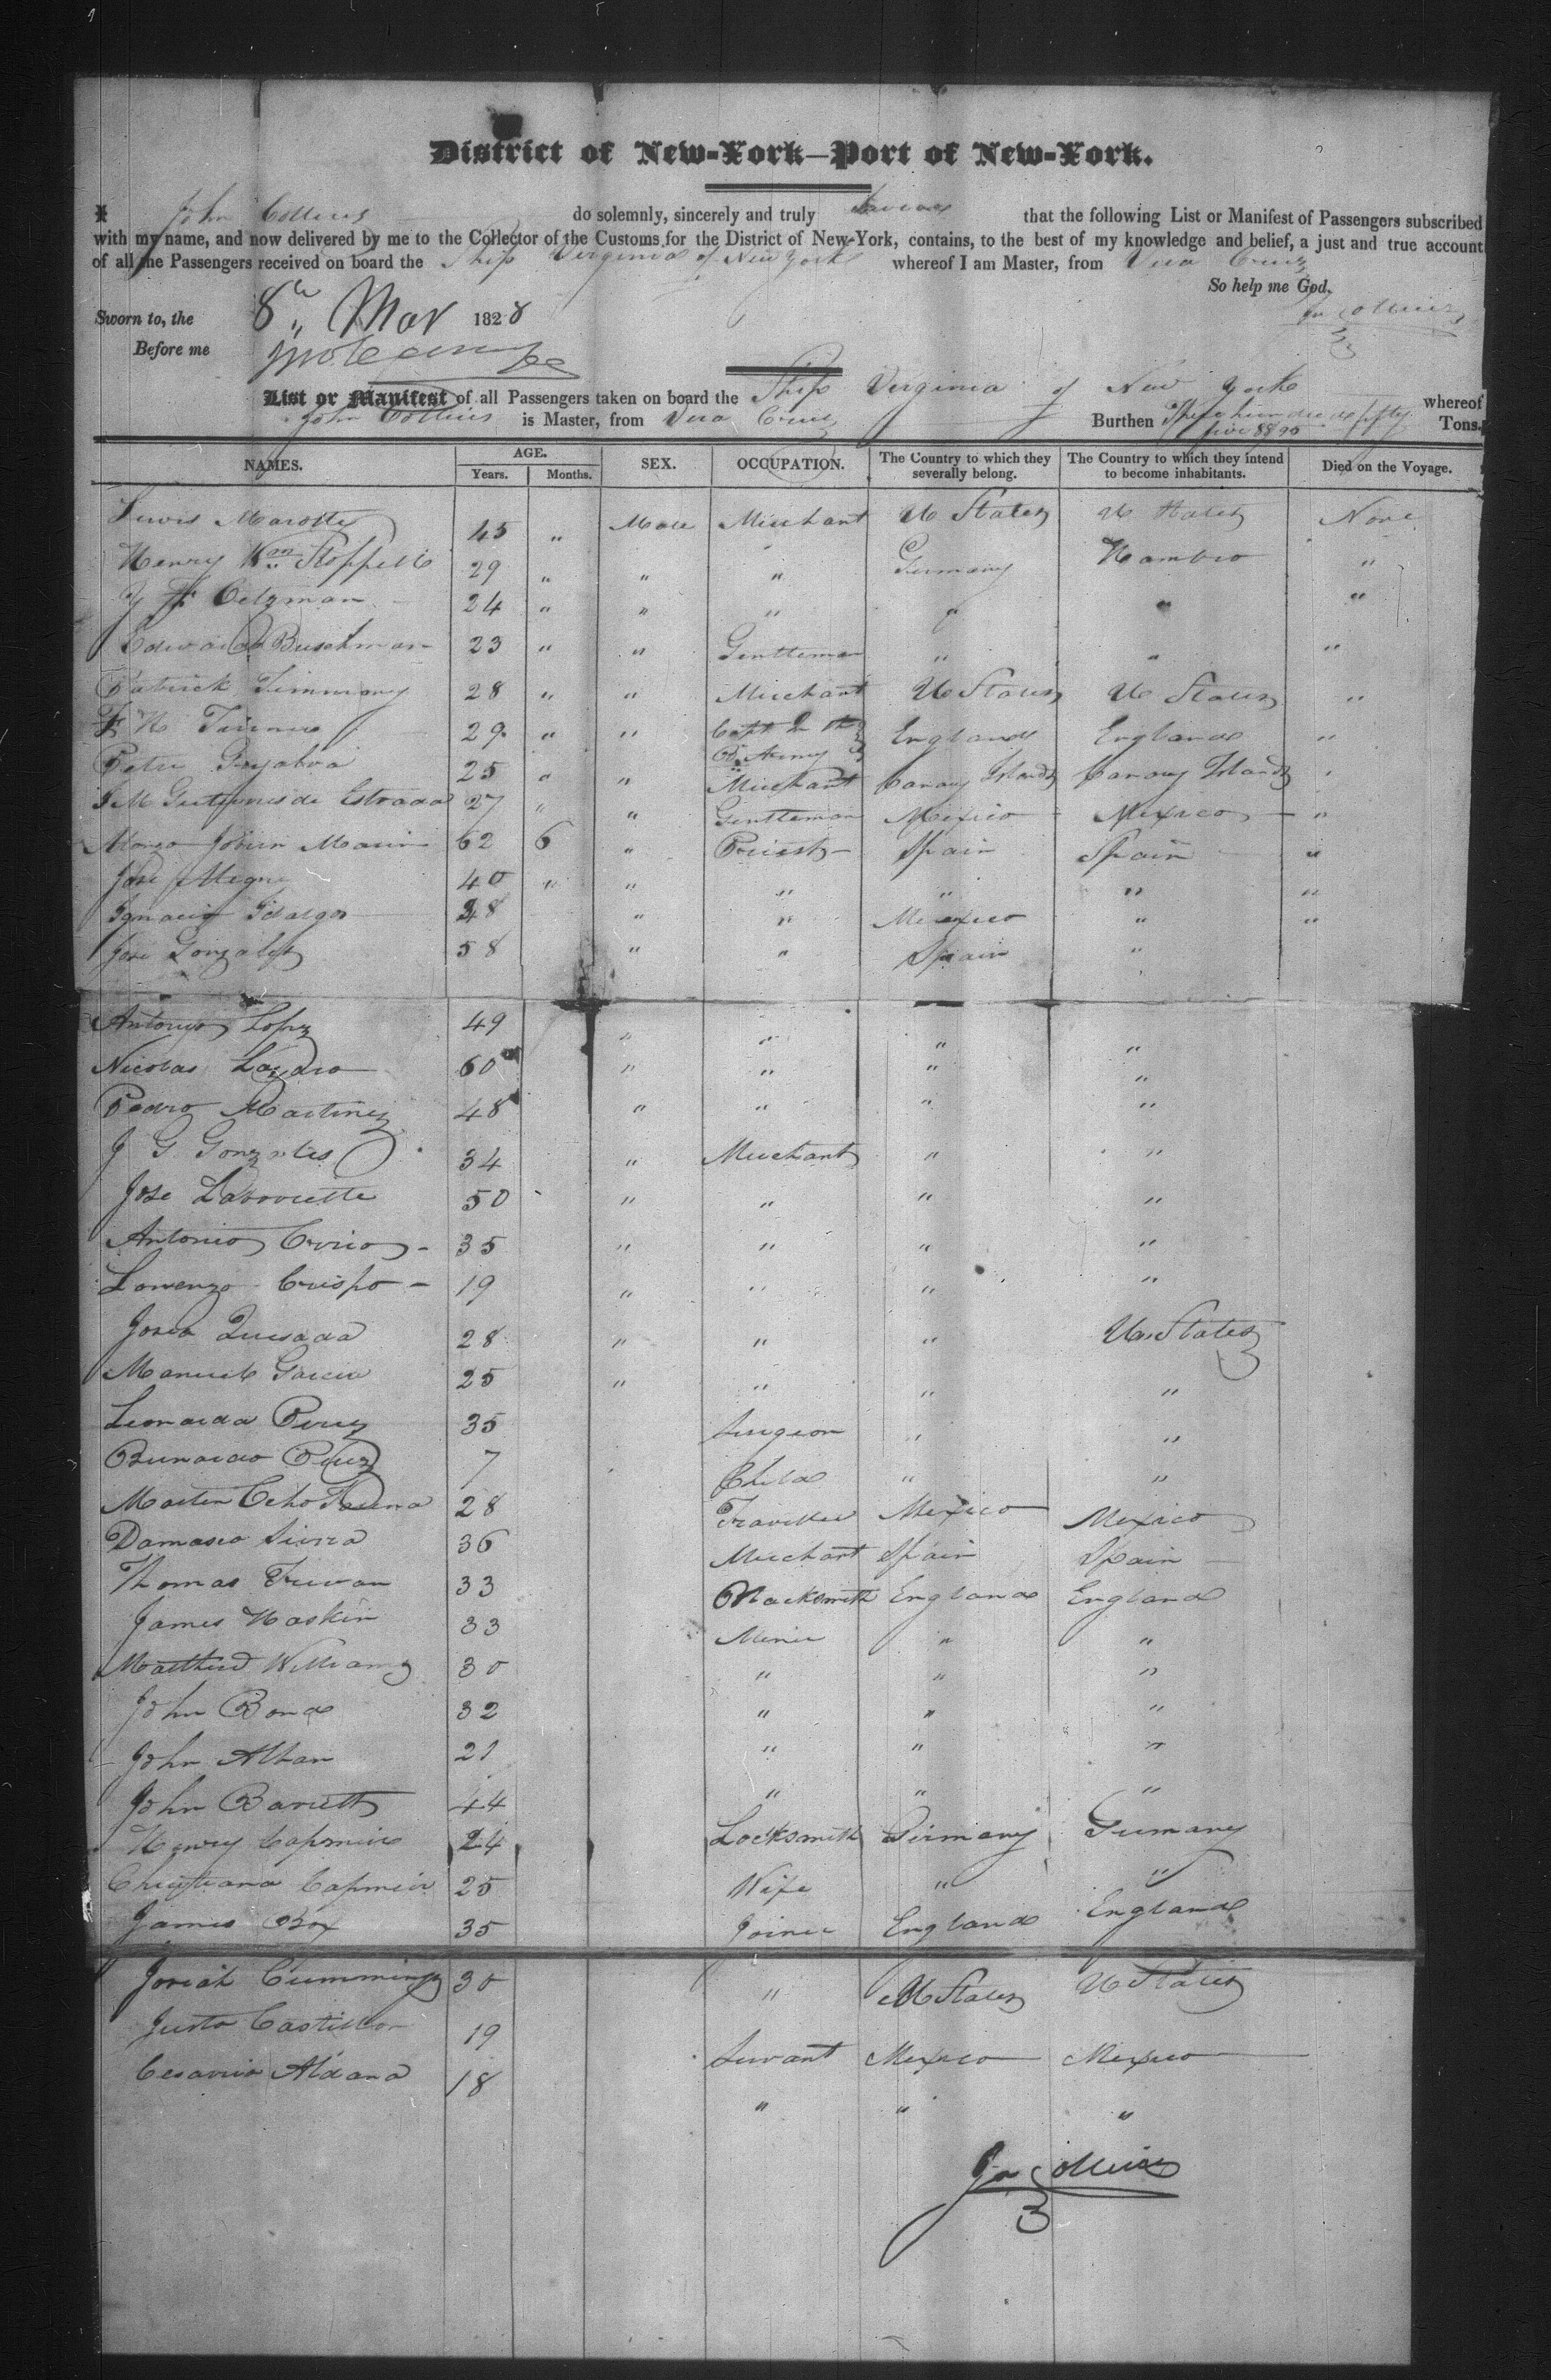 District of New-York—Port of New-York.
I John Collins do solemnly, sincerely and truly that the following List or Manifest of Passengers subscribed
with my name, and now delivered by me to the Collector of the Customs for the District of New-York, contains, to the best of my knowledge and belief, a just and true account
of all the Passengers received on board the Ship Virginia of New York whereof I am Master, from Vera Cruz
So help me God.
Jn Collins
Sworn to, the 8th Mar 1828
Before me
List or Manifest of all Passengers taken on board the Ship Virginia of New York whereof
John Collins is Master, from Vera Cruz Burthen Three hundred fifty Tons.
five 88 90
NAMES. AGE. SEX. OCCUPATION. The Country to which they severally belong. The Country to which they intend to become inhabitants. Died on the Voyage.
Years. Months.
Lewis 45 " Male Merchant U States U States None
Henry Wm Stoppell 29 " " " Germany Hambro "
24 " " " " " "
Edward Buschman 23 " " Gentleman " " "
Patrick 28 " " Merchant U States U States "
29 " " Capt in the B. Army England England "
25 " " Merchant Canary Islands Canary Islands "
de Estrada 27 " " Gentleman Mexico Mexico "
Marin 62 6 " Priest Spain Spain "
Jose 40 " " " " " "
Ignacio 48 " " Mexico " "
Jose Gonzales 58 " " Spain "
Antonio Lopez 49 " " " "
Nicolas 60 " " " "
Pedro Martinez 48 " " " "
J G Gonzales 34 " Merchant " "
Jose 50 " " " "
Antonio 35 " " " "
Lorenzo Crispo 19 " " " "
Quesada 28 " " " U. States
Manuel Garcia 25 " " " "
Leonarda Perez 35 Surgeon " "
Bernardo Perez 7 Child " "
28 Traveller Mexico Mexico
Damaseo Sierra 36 Merchant Spain Spain
Thomas 33 Blacksmith England England
James Haskin 33 Miner " "
Matthew Williams 30 " " "
John Bond 32 " " "
John Alban 21 " " "
John Barrett 44 " " "
Henry Capmeir 24 Locksmith Germany Germany
Christiana Capmeir 25 Wife " "
James Box 35 Joiner England England
Josiah Cummings 30 " U States U States
Justo Castillo 19 Servant Mexico Mexico
Cesario Aldana 18 " " "
Jn Collins